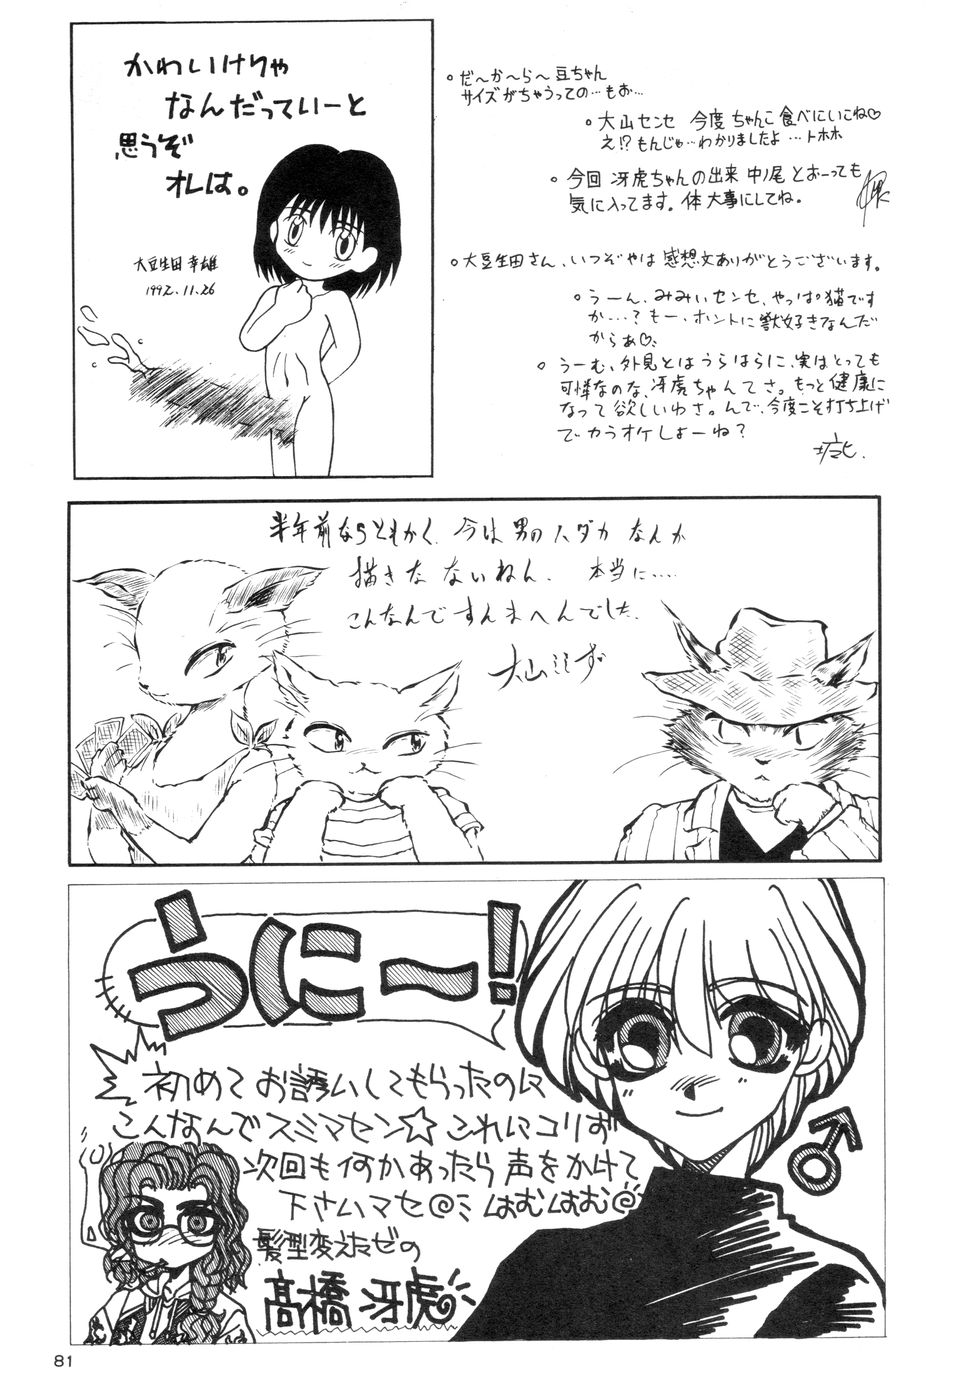 かわいけりゃ
なんだっていーと
思うぞ
オレは。
大豆生田 幸雄
1992.11.26
○だ〜か〜ら〜豆ちゃん
サイズがちゃうっての…もお…
○大山センセ 今度 ちゃんこ 食べにいこね♡
え!?もんじゃ…わかりましたよ…トホホ
○今回 冴虎ちゃんの出来 中ノ尾 とおーっても
気に入ってます。体大事にしてね。
○大豆生田さん、いつぞやは 感想文ありがとうございます。
○うーん、みみぃセンセ、やっぱ猫です
か…?もー、ホントに獣好きなんだ
からぁ♡
○うーむ、外見とはうらはらに、実はとっても
可憐なのな、冴虎ちゃんてさ。もっと健康に
なって欲しいわさ。んで、今度こそ打ち上げ
でカラオケしよーね?
半年前ならともかく、今は男のハダカなんか
描きたないねん。 本当に….
こんなんですんまへんでした。
大山みみず
うに〜!
初めてお誘いしてもらったのに
こんなんでスミマセン☆これにコリず
次回も何かあったら声をかけて
下さいマセ@ミ はむはむ@
髪型変えたゼの
高橋 冴虎
♂
81